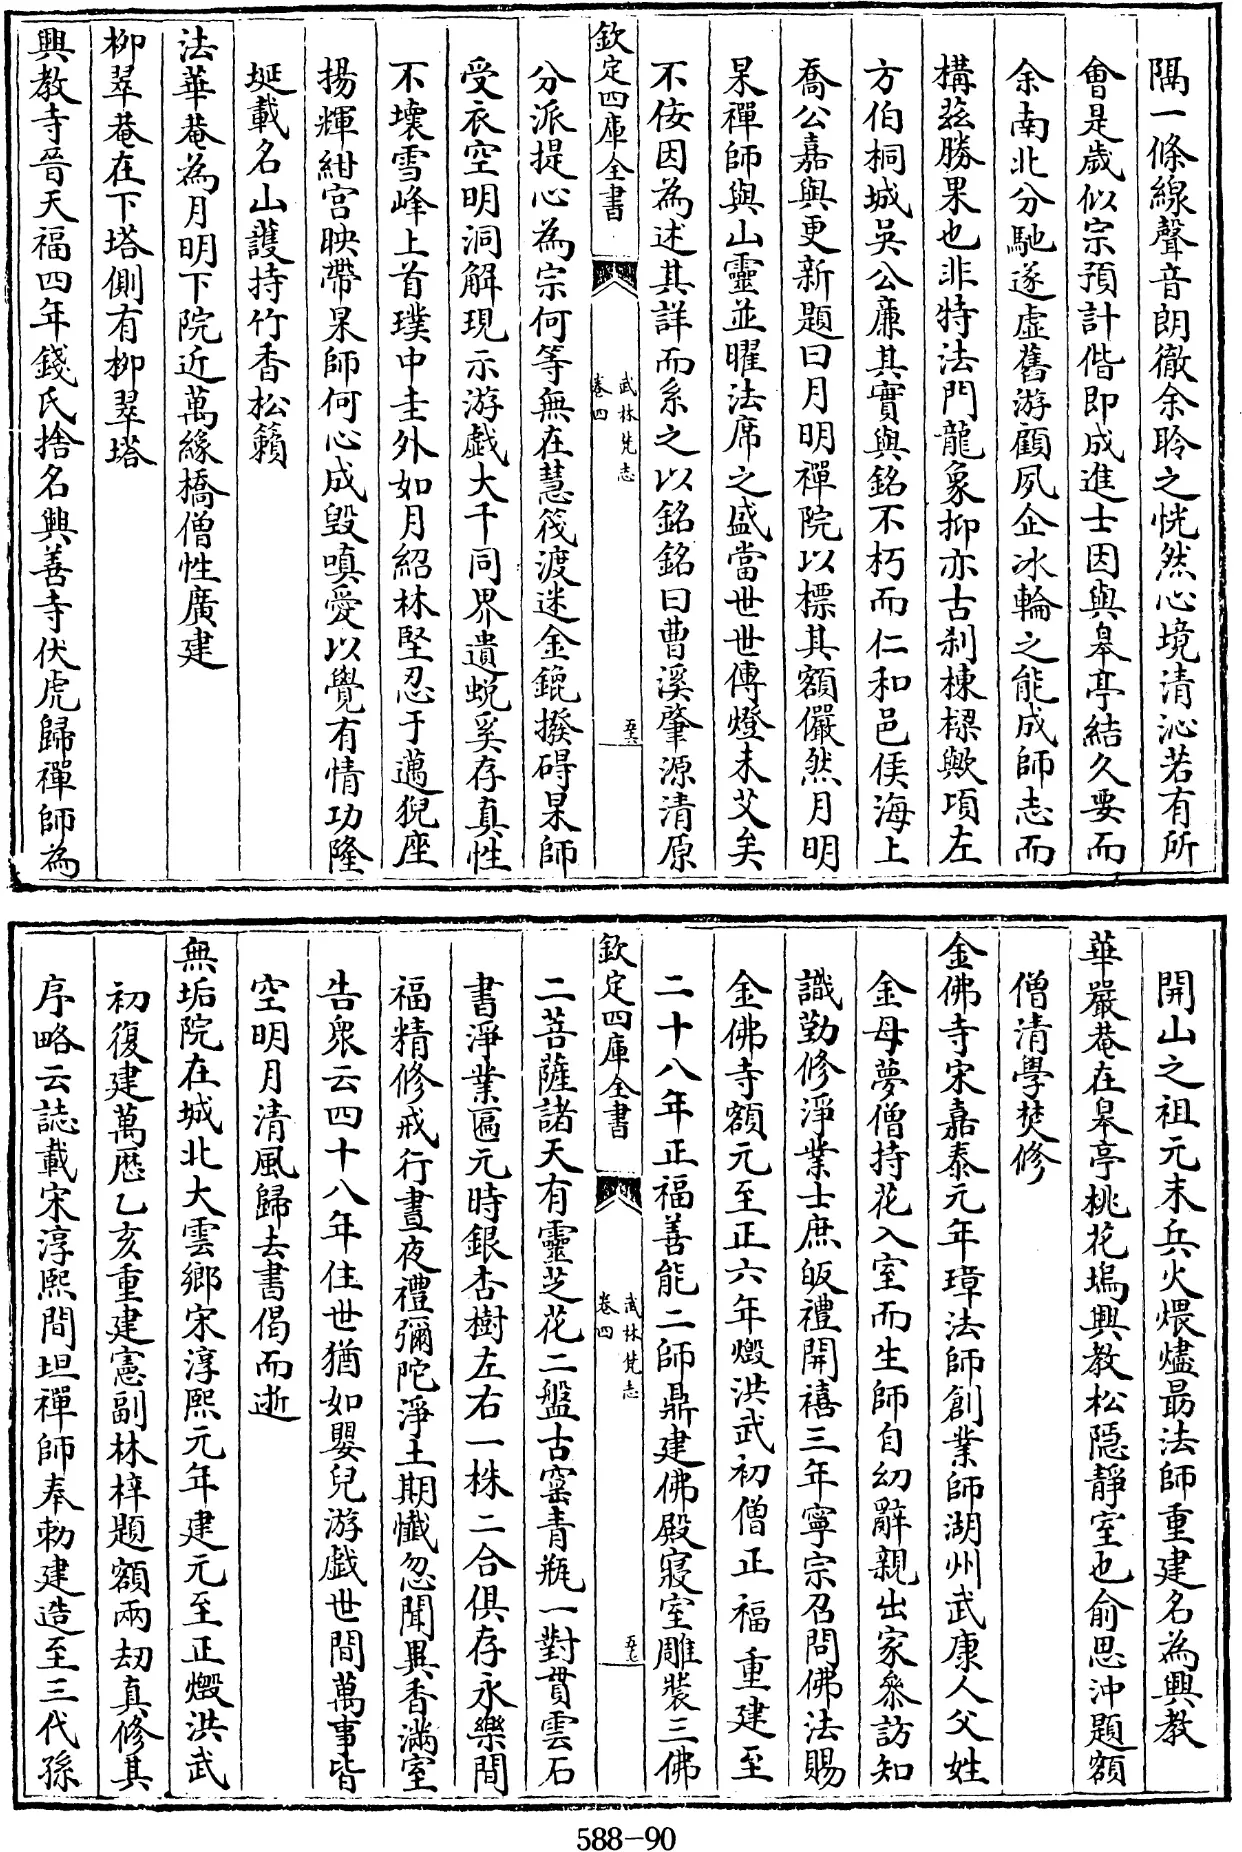 隅一條線聲音朗徹余聆之恍然心境清沁若有所
會是歲似宗預計偕即成進士因與皋亭結久要而
余南北分馳遂虛舊游顧夙企冰輪之能成師志而
構茲勝果也非特法門龍象抑亦古刹棟樑歟項左
方伯桐城吳公廉其實與銘不朽而仁和邑侯海上
喬公嘉與更新題曰月明禪院以標其額儼然月明
杲禪師與山靈並曜法席之盛當世世傳燈未艾矣
不佞因為述其詳而系之以銘銘曰曹溪肇源清原
欽定四庫全書
武林梵志
卷四
五六
分派提心為宗何等無在慧筏渡迷金鎞撥碍杲師
受衣空明洞解現示游戲大千同界遺蛻奚存真性
不壞雪峰上首璞中圭外如月紹林堅忍于邁猊座
揚輝紺宮映帶杲師何心成毀嗔愛以覺有情功隆
埏載名山護持竹香松籟
法華菴為月明下院近萬緣橋僧性廣建
柳翠菴在下塔側有柳翠塔
興教寺晉天福四年錢氏捨名興善寺伏虎歸禪師為
開山之祖元末兵火煨燼最法師重建名為興教
華嚴菴在皋亭桃花塢興教松隱靜室也俞思沖題額
僧清學焚修
金佛寺宋嘉泰元年璋法師創業師湖州武康人父姓
金母夢僧持花入室而生師自幼辭親出家叅訪知
識勤修淨業士庶皈禮開禧三年寧宗召問佛法賜
金佛寺額元至正六年燬洪武初僧正福重建至
二十八年正福善能二師鼎建佛殿寢室雕裝三佛
欽定四庫全書
武林梵志
卷四
五七
二菩薩諸天有靈芝花二盤古窰青瓶一對貫雲石
書淨業匾元時銀杏樹左右一株二合俱存永樂間
福精修戒行晝夜禮彌陀淨土期懺忽聞異香滿室
告衆云四十八年住世猶如嬰兒游戲世間萬事皆
空明月清風歸去書偈而逝
無垢院在城北大雲鄉宋淳熙元年建元至正燬洪武
初復建萬歷乙亥重建憲副林梓題額兩劫真修其
序略云誌載宋淳熙間坦禪師奉勅建造至三代孫
588-90